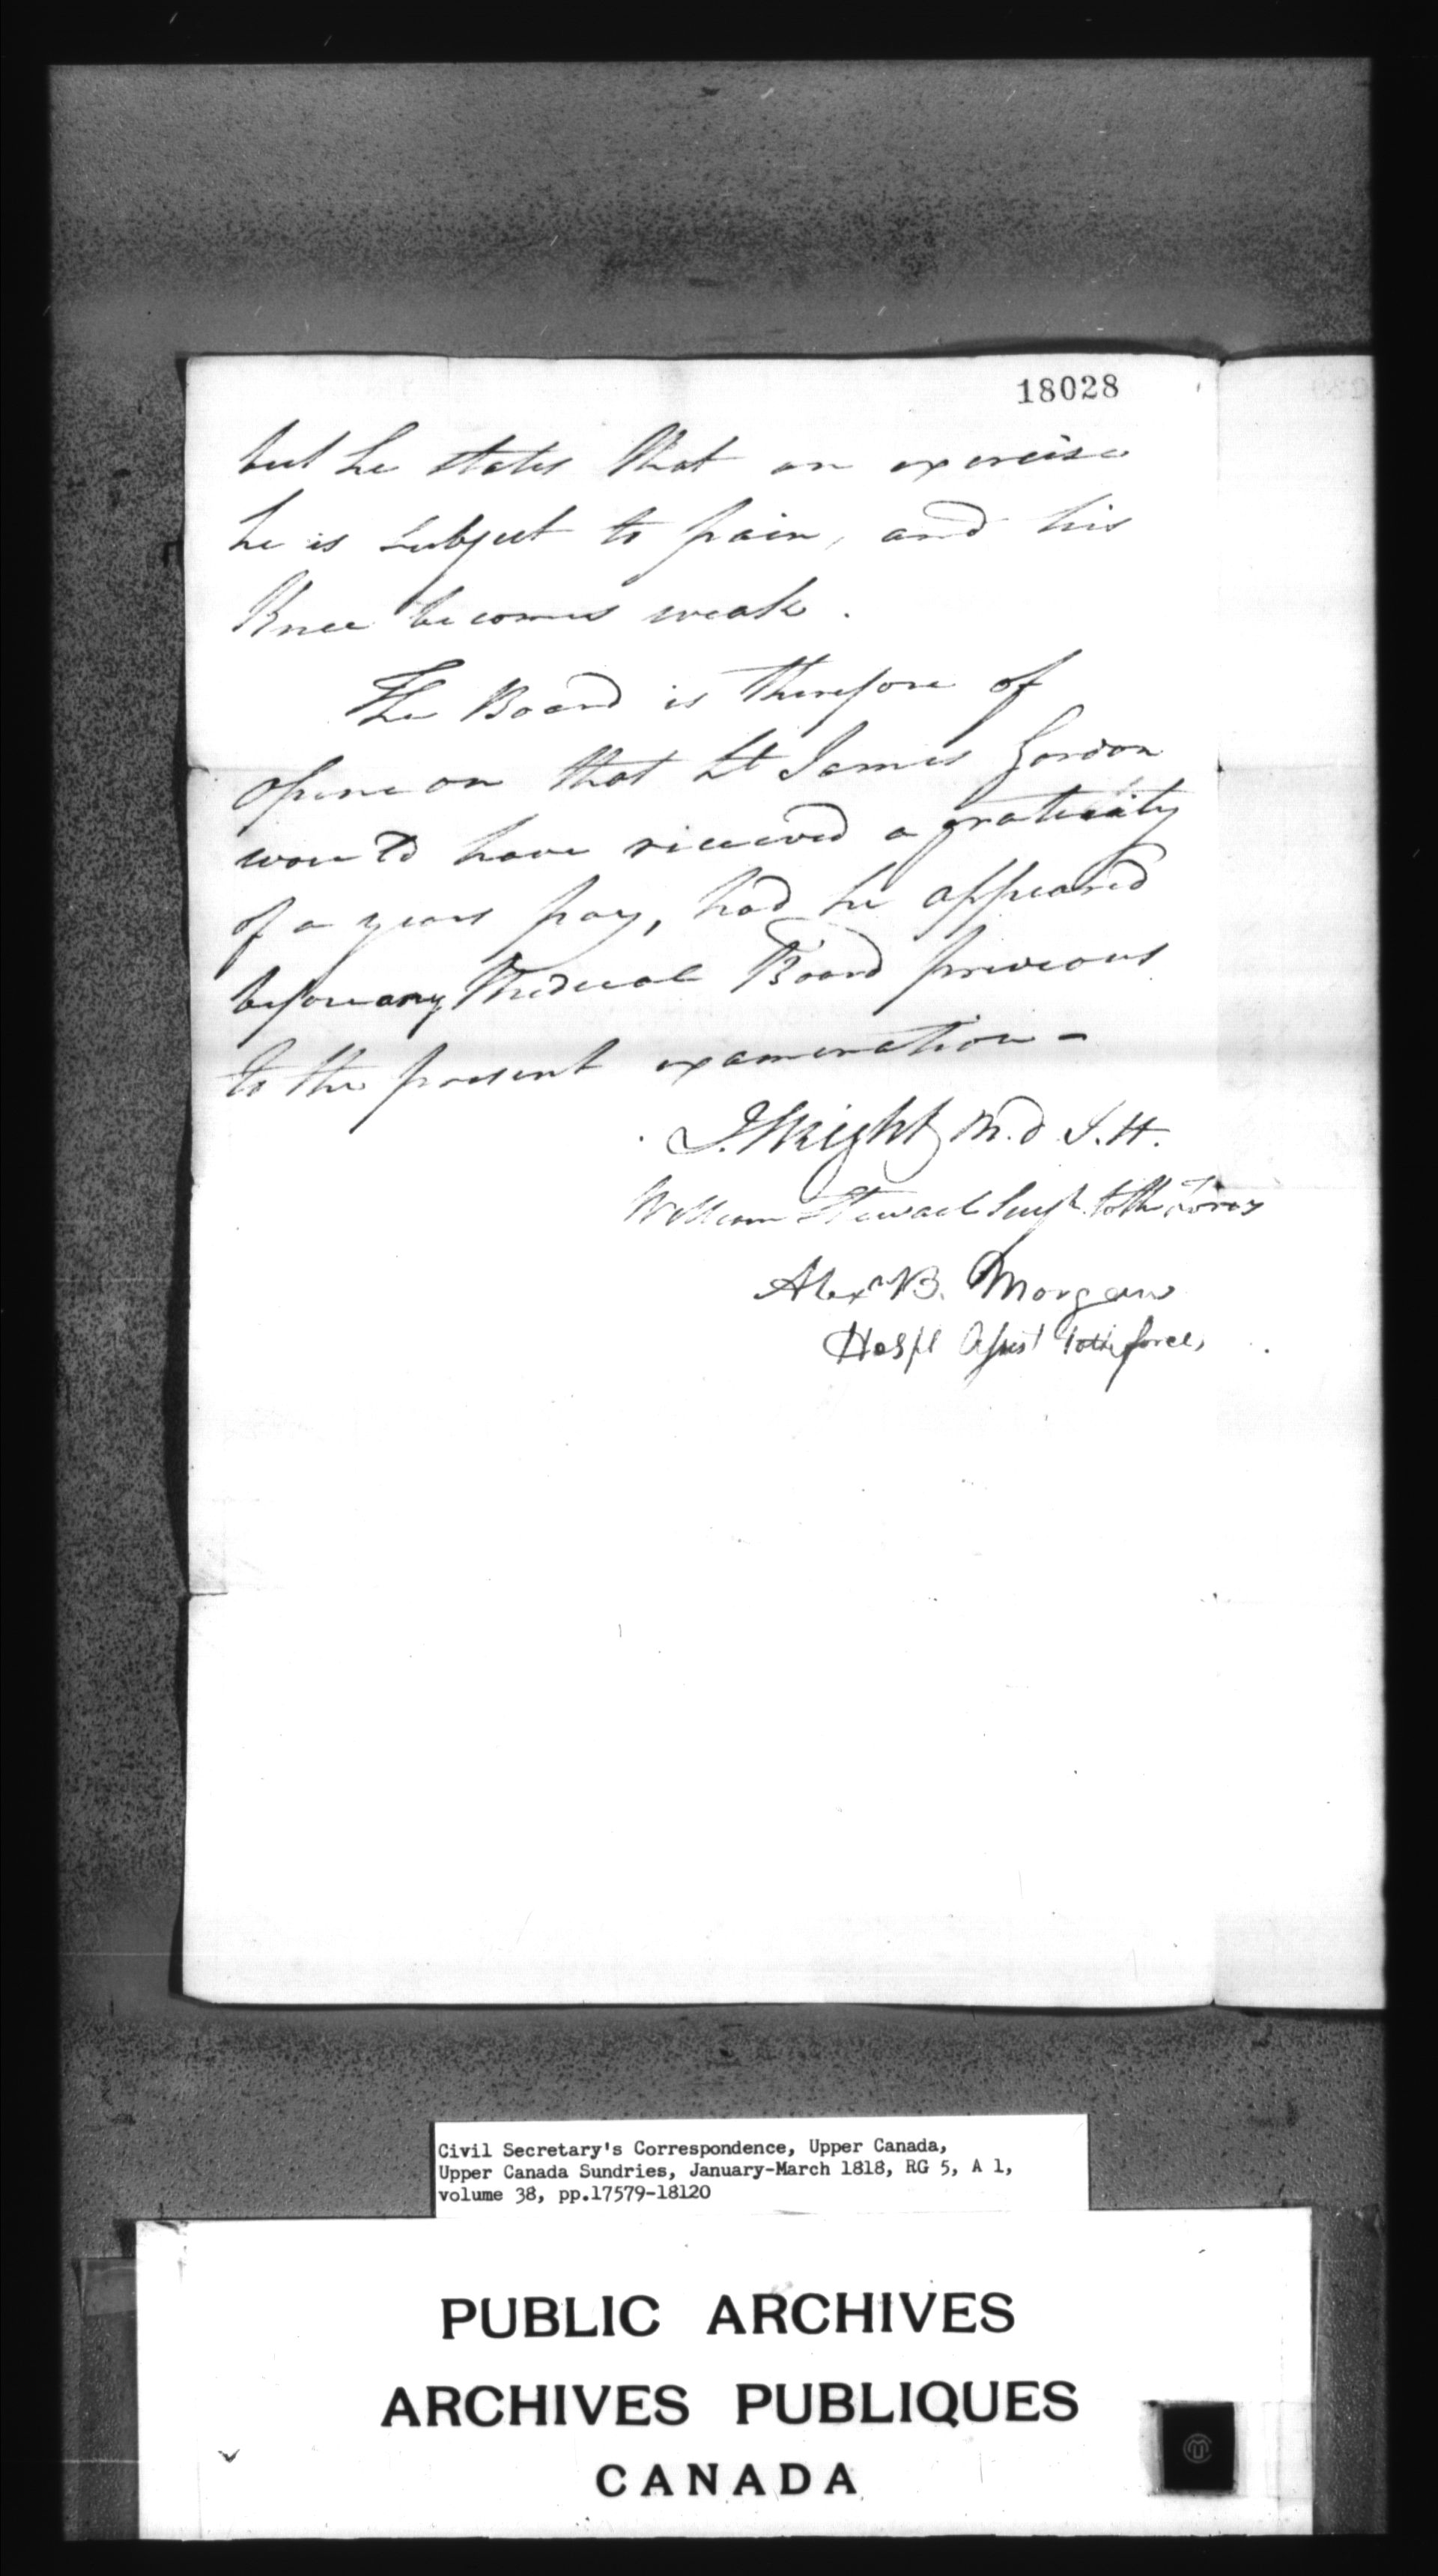 18028
but he states that on exercise
he is subject to pain, and his
Knee becomes weak.
The Board is therefore of
opineon that Lt James Gordon
would have received a gratuity
of a years pay, had he appeared
before any Medical Board previous
to the present examenation -
J. Wright M.D. I. H.
William Stewart Surgn. to the Forces
Alexr B. Morgan
Hospl Assist to the forces
Civil Secretary's Correspondence, Upper Canada,
Upper Canada Sundries, January-March 1818, RG 5, A 1,
volume 38, pp.17579-18120
PUBLIC ARCHIVES
ARCHIVES PUBLIQUES
CANADA